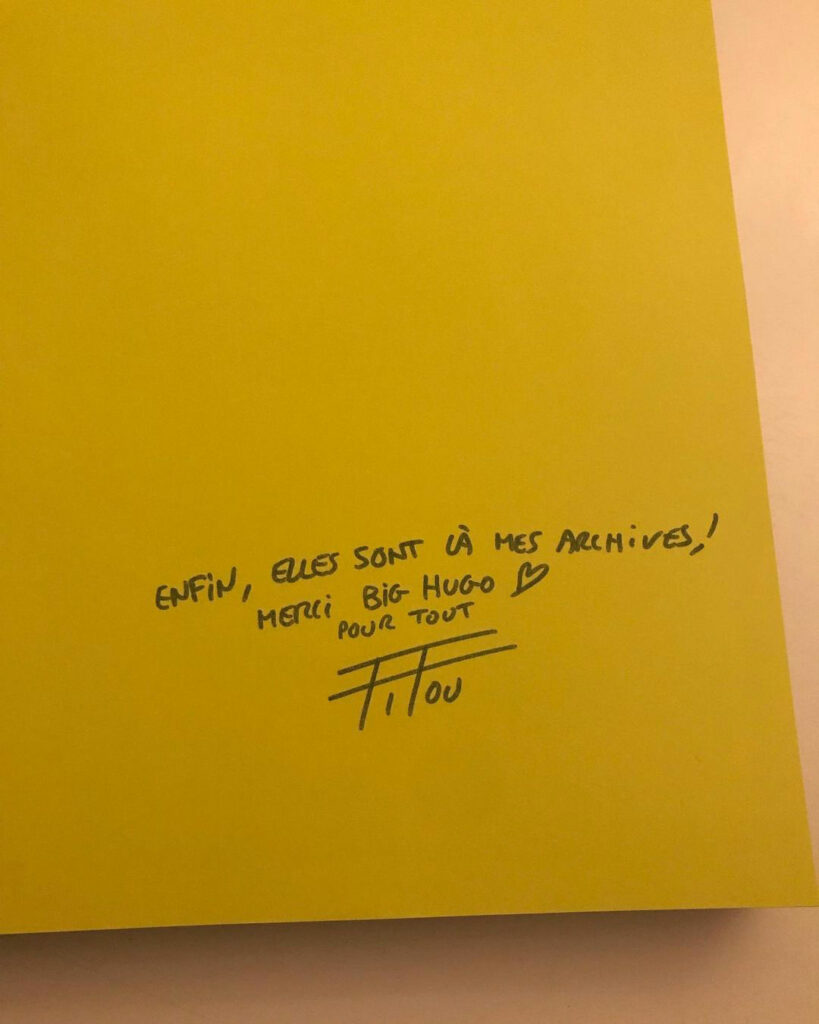 ENFIN, ELLES SONT LÀ MES ARCHIVES,!
MERCI BIG HUGO ♡
POUR TOUT
FiFou